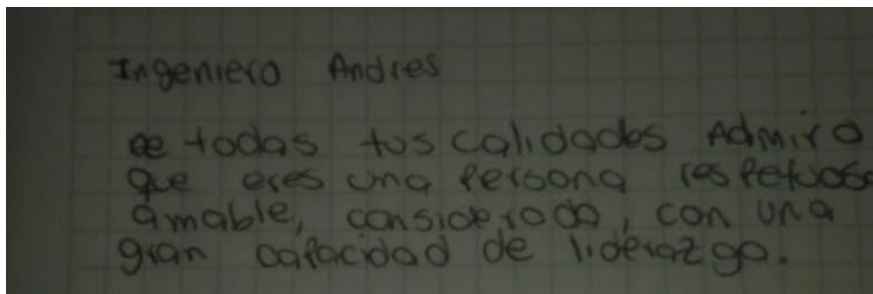 Ingeniero Andres
de todas tus calidades Admiro
que eres una persona respetuosa
amable, considerada, con una
gran capacidad de liderazgo.